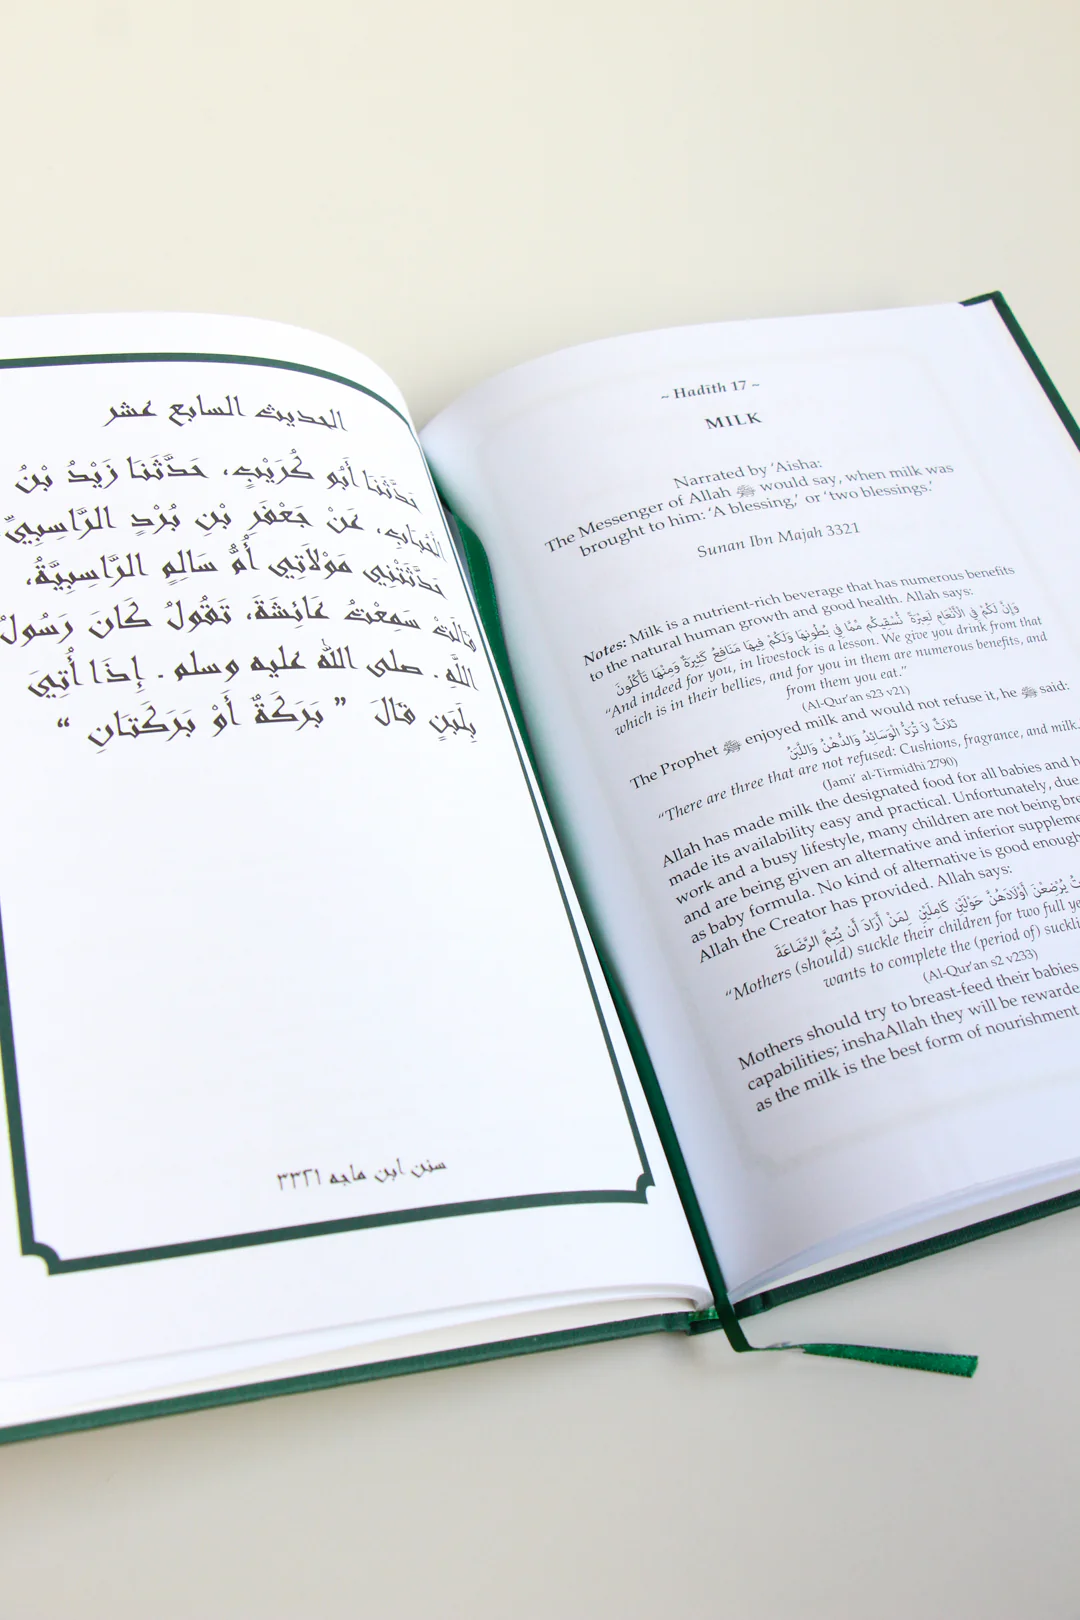 الحديث السابع عشر
حَدَّثَنَا أَبُو كُرَيْبٍ، حَدَّثَنَا زَيْدُ بْنُ
الْحُبَابِ، عَنْ جَعْفَرِ بْنِ بُرْدٍ الرَّاسِبِيِّ
حَدَّثَتْنِي مَوْلاَتِي أُمُّ سَالِمٍ الرَّاسِبِيَّةُ،
قَالَتْ سَمِعْتُ عَائِشَةَ، تَقُولُ كَانَ رَسُولُ
اللَّهِ ـ صلى الله عليه وسلم ـ إِذَا أُتِيَ
بِلَبَنٍ قَالَ ‏"‏ بَرَكَةٌ أَوْ بَرَكَتَانِ ‏"‏
سنن ابن ماجه ٣٣٢١
~ Hadith 17 ~
MILK
Narrated by ‘Aisha:
The Messenger of Allah ﷺ would say, when milk was
brought to him: ‘A blessing,’ or ‘two blessings.’
Sunan Ibn Majah 3321
Notes: Milk is a nutrient-rich beverage that has numerous benefits
to the natural human growth and good health. Allah says:
وَإِنَّ لَكُمْ فِي الْأَنْعَامِ لَعِبْرَةً نُّسْقِيكُم مِّمَّا فِي بُطُونِهَا وَلَكُمْ فِيهَا مَنَافِعُ كَثِيرَةٌ وَمِنْهَا تَأْكُلُونَ
“And indeed for you, in livestock is a lesson. We give you drink from that
which is in their bellies, and for you in them are numerous benefits, and
from them you eat.”
(Al-Qur’an s23 v21)
The Prophet ﷺ enjoyed milk and would not refuse it, he ﷺ said:
ثَلَاثٌ لَا تُرَدُّ الْوَسَائِدُ وَالدُّهْنُ وَاللَّبَنُ
“There are three that are not refused: Cushions, fragrance, and milk.
(Jami’ al-Tirmidhi 2790)
Allah has made milk the designated food for all babies and h
made its availability easy and practical. Unfortunately, due
work and a busy lifestyle, many children are not being bre
and are being given an alternative and inferior suppleme
as baby formula. No kind of alternative is good enough
Allah the Creator has provided. Allah says:
يُرْضِعْنَ أَوْلَادَهُنَّ حَوْلَيْنِ كَامِلَيْنِ لِمَنْ أَرَادَ أَن يُتِمَّ الرَّضَاعَةَ
“Mothers (should) suckle their children for two full ye
wants to complete the (period of) suckli
(Al-Qur’an s2 v233)
Mothers should try to breast-feed their babies
capabilities; inshaAllah they will be rewarde
as the milk is the best form of nourishment